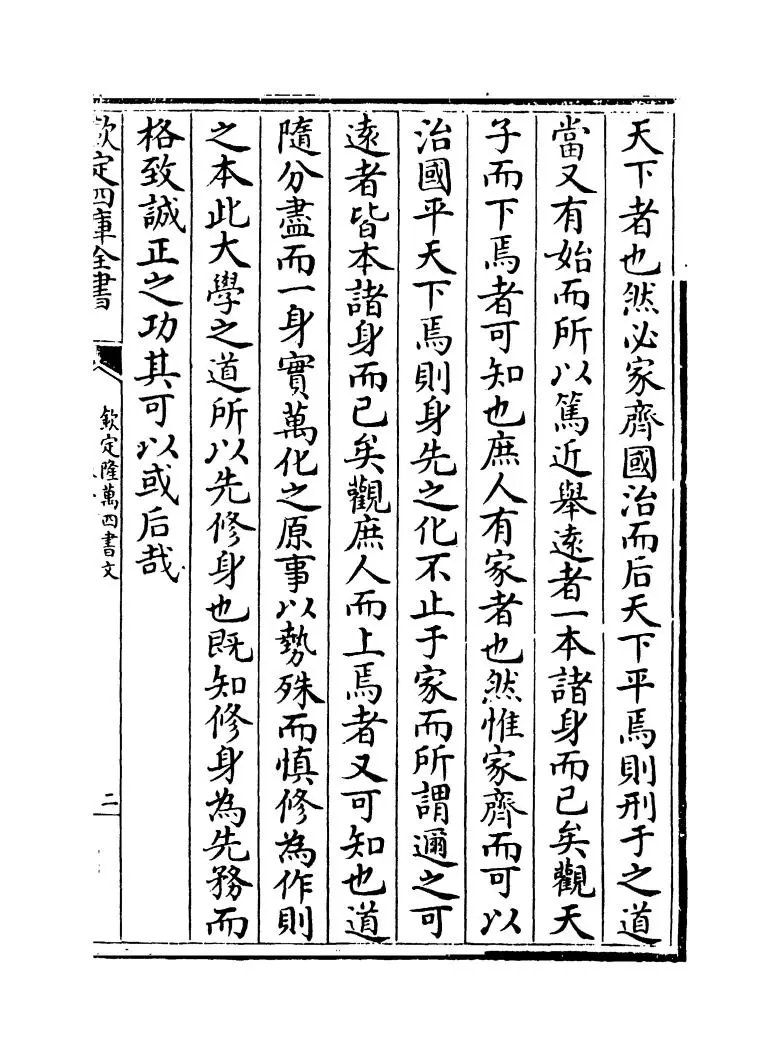 天下者也然必家齊國治而后天下平焉則刑于之道
當又有始而所以篤近舉遠者一本諸身而已矣觀天
子而下焉者可知也庶人有家者也然惟家齊而可以
治國平天下焉則身先之化不止于家而所謂邇之可
遠者皆本諸身而已矣觀庶人而上焉者又可知也道
隨分盡而一身實萬化之原事以勢殊而慎修為作則
之本此大學之道所以先修身也既知修身為先務而
格致誠正之功其可以或后哉
欽定四庫全書
欽定隆萬四書文
二